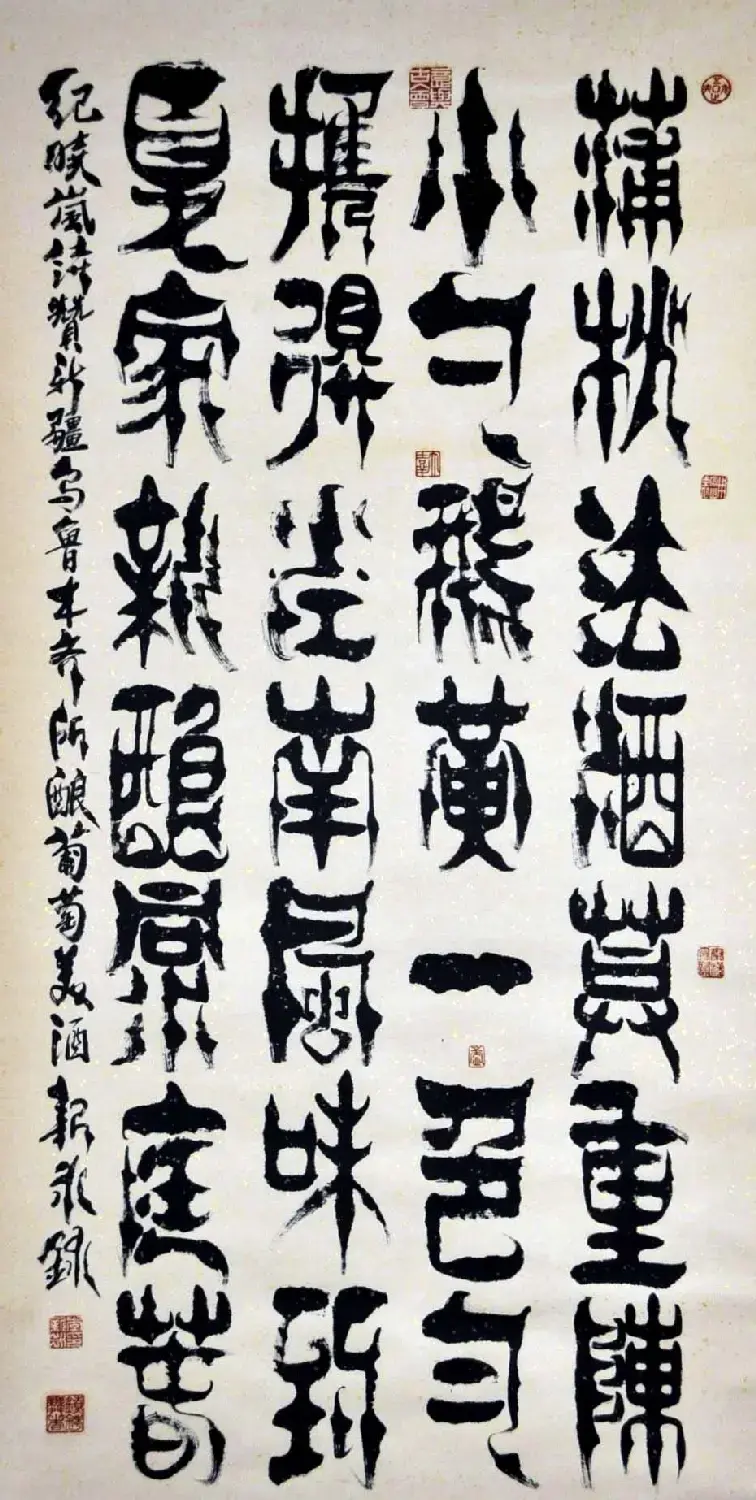 蒲桃法酒莫重陳
小勺鵝黃一色勻
攜得江南風味到
夏家新釀洞庭春
紀曉嵐詩贊新疆烏魯木齊所釀葡萄美酒 錄